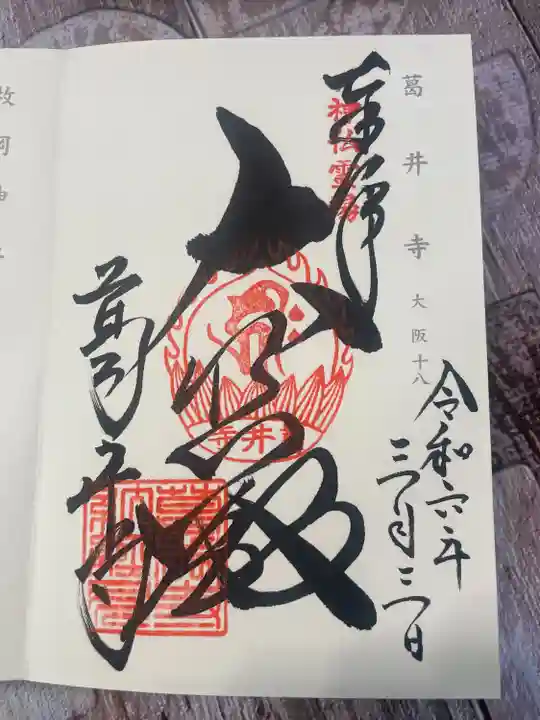 葛井寺 大阪十八
奉拝
神仏霊場
令和六年
三月三日
大悲殿
葛井寺
葛井寺